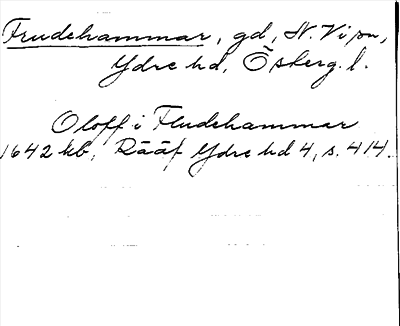 Frudehammar, gd, N. Vi sn,
Ydre hd, Österg. l.
Oloff i Fludehammar
1642 kb, Rääf Ydre hd 4, s. 414.